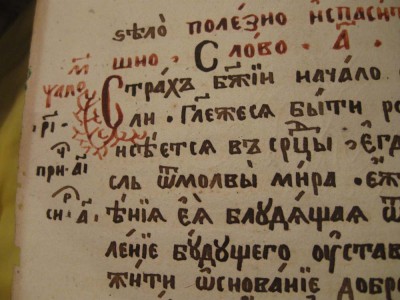 ѕѣло̀ полє́зно и҆спаси́т
шно. Сло́во. а҃.
Стра́хъ бж҃їй нача́ло
сли. гл҃ежеся бы́ти ро
и҆нсѣ́ется въ срⷣцы. є҆гда̀
сль ѿмолвы̀ ми́ра. є҆́ж
ѣ́нїя єѧ̀ блудѧ́щая ѿ
ле́нїе бу́дущего оу҆став
жи́ти ѡ҆снова́нїе добро
ѱало
рі҃
при. а҃і
си. а҃.